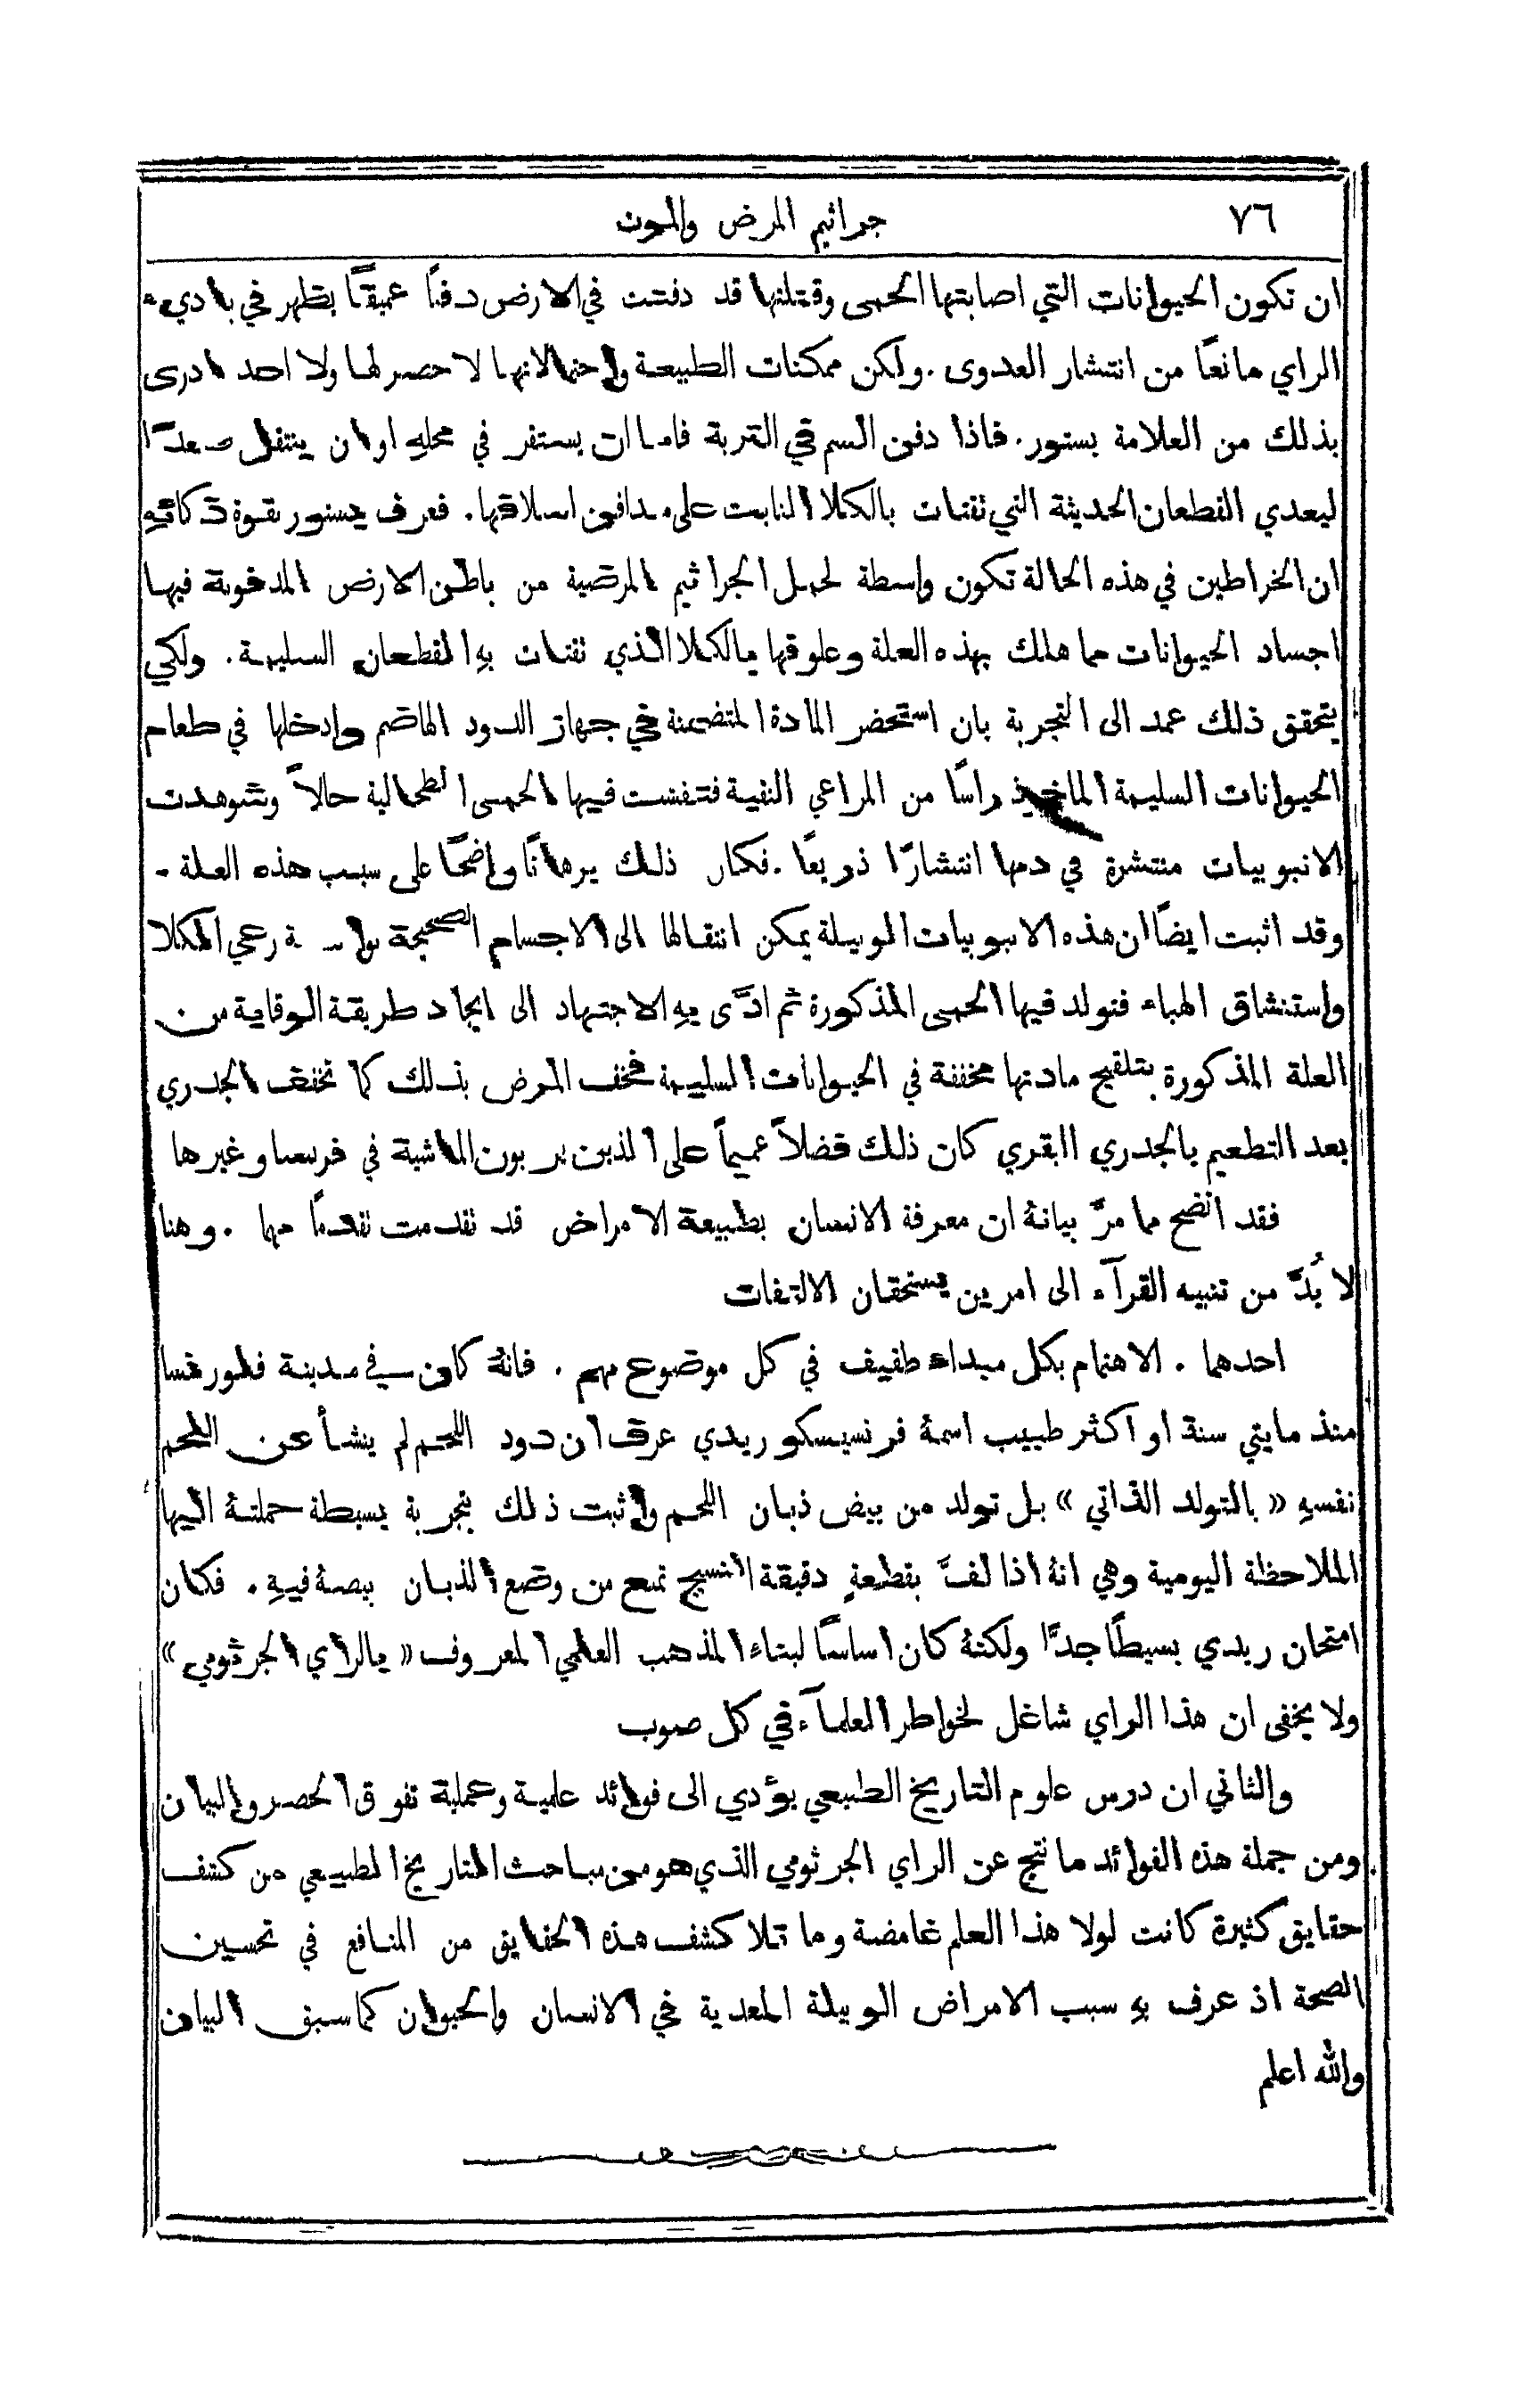 ٧٦ جراثيم المرض والموت
ان تكون الحيوانات التي اصابتها الحمى وقتلتها قد دفنت في الارض دفنًا عميقًا يظهر في باديء
الراي مانعًا من انتشار العدوى . ولكن ممكنات الطبيعة واحتمالاتها لا حصر لها ولا احد ادرى
بذلك من العلامة بستور . فاذا دفن السم في التربة فاما ان يستقر في محلهِ او ان ينتقل صعدًا
ليعدي القطعان الحديثة التي تقتات بالكلا النابت على مدافن اسلافها . فعرف بستور بقوة ذكائهِ
ان الخراطين في هذه الحالة تكون واسطة لحمل الجراثيم المرضية من باطن الارض المدفونة فيها
اجساد الحيوانات مما هلك بهذه العلة وعلوقها بالكلا الذي تقتات بهِ القطعان السليمة . ولكي
يتحقق ذلك عمد الى التجربة بان استحضر المادة المتضمنة في جهاز الدود الهاضم وادخلها في طعام
الحيوانات السليمة الماخوذ راسًا من المراعي النقية فتفشت فيها الحمى الطحالية حالاً وشوهدت
الانبوبيات منتشرة في دمها انتشارًا ذريعًا . فكان ذلك برهانًا واضحًا على سبب هذه العلة .
وقد اثبت ايضًا ان هذه الانبوبيات الوبيلة يمكن انتقالها الى الاجسام الصحيحة رعي الكلا
واستنشاق الهباء فتولد فيها الحمى المذكورة ثم ادَّى بهِ الاجتهاد الى ايجاد طريقة الوقاية من
العلة المذكورة بتلقيح مادتها مخففة في الحيوانات السليمة فخف المرض بذلك كما تخفف الجدري
بعد التطعيم بالجدري البقري كان ذلك فضلاً عميماً على الذين يربون الماشية في فرنسا وغيرها
فقد اتضح مما مرَّ بيانهُ ان معرفة الانسان بطبيعة الامراض قد تقدمت تقدمًا مهما . وهنا
لا بُدَّ من تنبيه القرآء الى امرين يستحقان الالتفات
احدهما . الاهتمام بكل مبداء طفيف في كل موضوع مهم . فانهُ كان في مدينة فلورنسا
منذ مايتي سنة او اكثر طبيب اسمهُ فرنسيسكو ريدي عرف ان دود اللحم لم ينشأ عن اللحم
نفسهِ « بالتولد الذاتي » بل تولد من بيض ذبان اللحم واثبت ذلك بتجربة بسيطة حملتهُ اليها
الملاحظة اليومية وهي انهُ اذا لفَّ بقطعةٍ دقيقة النسيج تمنع من وضع الذبان بيضهُ فيهِ . فكان
امتحان ريدي بسيطًا جدًّا ولكنهُ كان اساسًا لبناءِ المذهب العلمي المعروف « بالراي الجرثومي »
ولا يخفى ان هذا الراي شاغل لخواطر العلمآء في كل صوب
والثاني ان درس علوم التاريخ الطبيعي يؤدي الى فوائد علمية وعملية تفوق الحصر والبيان
ومن جملة هذه الفوائد ما نتج عن الراي الجرثومي الذي هو من مباحث التاريخ الطبيعي من كشف
حقايق كثيرة كانت لولا هذا العلم غامضة وما تلا كشف هذه الحقايق من المنافع في تحسين
الصحة اذ عرف بهِ سبب الامراض الوبيلة المعدية في الانسان والحيوان كما سبق البيان
والله اعلم